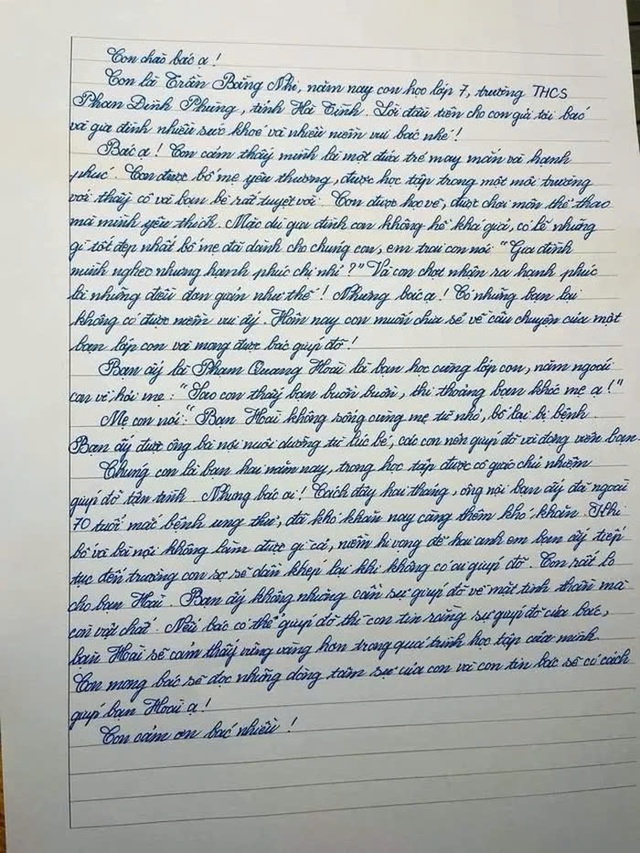 Con chào bác ạ!
Con là Trần Băng Nhi, năm nay con học lớp 7, trường THCS
Phan Đình Phùng, tỉnh Hà Tĩnh. Lời đầu tiên cho con gửi tới bác
và gia đình nhiều sức khoẻ và nhiều niềm vui bác nhé!
Bác ạ! Con cảm thấy mình là một đứa trẻ may mắn và hạnh
phúc. Con được bố mẹ yêu thương, được học tập trong một môi trường
với thầy cô và bạn bè rất tuyệt vời. Con được học vẽ, được chơi môn thể thao
mà mình yêu thích. Mặc dù gia đình con không hề khá giả, có lẽ những
gì tốt đẹp nhất bố mẹ đã dành cho chúng con, em trai con nói: "Gia đình
mình nghèo nhưng hạnh phúc chị nhỉ?" Và con chợt nhận ra hạnh phúc
là những điều đơn giản như thế! Nhưng bác ạ! Có những bạn lại
không có được niềm vui ấy. Hôm nay con muốn chia sẻ về câu chuyện của một
bạn lớp con và mong được bác giúp đỡ!
Bạn ấy là Phạm Quang Hoài là bạn học cùng lớp con, năm ngoái
con về hỏi mẹ: "Sao con thấy bạn buồn buồn, thi thoảng bạn khóc mẹ ạ!"
Mẹ con nói: "Bạn Hoài không sống cùng mẹ từ nhỏ, bố lại bị bệnh
Bạn ấy được ông bà nội nuôi dưỡng từ lúc bé, các con nên giúp đỡ và động viên bạn.
Chúng con là bạn hai năm nay, trong học tập được cô giáo chủ nhiệm
giúp đỡ tận tình. Nhưng bác ơi! Cách đây hai tháng, ông nội bạn ấy đã ngoài
70 tuổi mắc bệnh ung thư, đã khó khăn nay càng thêm khó khăn. Khi
bố và bà nội không làm được gì cả, niềm hi vọng để hai anh em bạn ấy tiếp
tục đến trường con sợ sẽ dần khép lại khi không có ai giúp đỡ. Con rất lo
cho bạn Hoài. Bạn ấy không những cần sự giúp đỡ về mặt tinh thần mà
còn vật chất. Nếu bác có thể giúp đỡ thì con tin rằng sự giúp đỡ của bác,
bạn Hoài sẽ cảm thấy vững vàng hơn trong quá trình học tập của mình.
Con mong bác sẽ đọc những dòng tâm sự của con và con tin bác sẽ có cách
giúp bạn Hoài ạ!
Con cảm ơn bác nhiều!